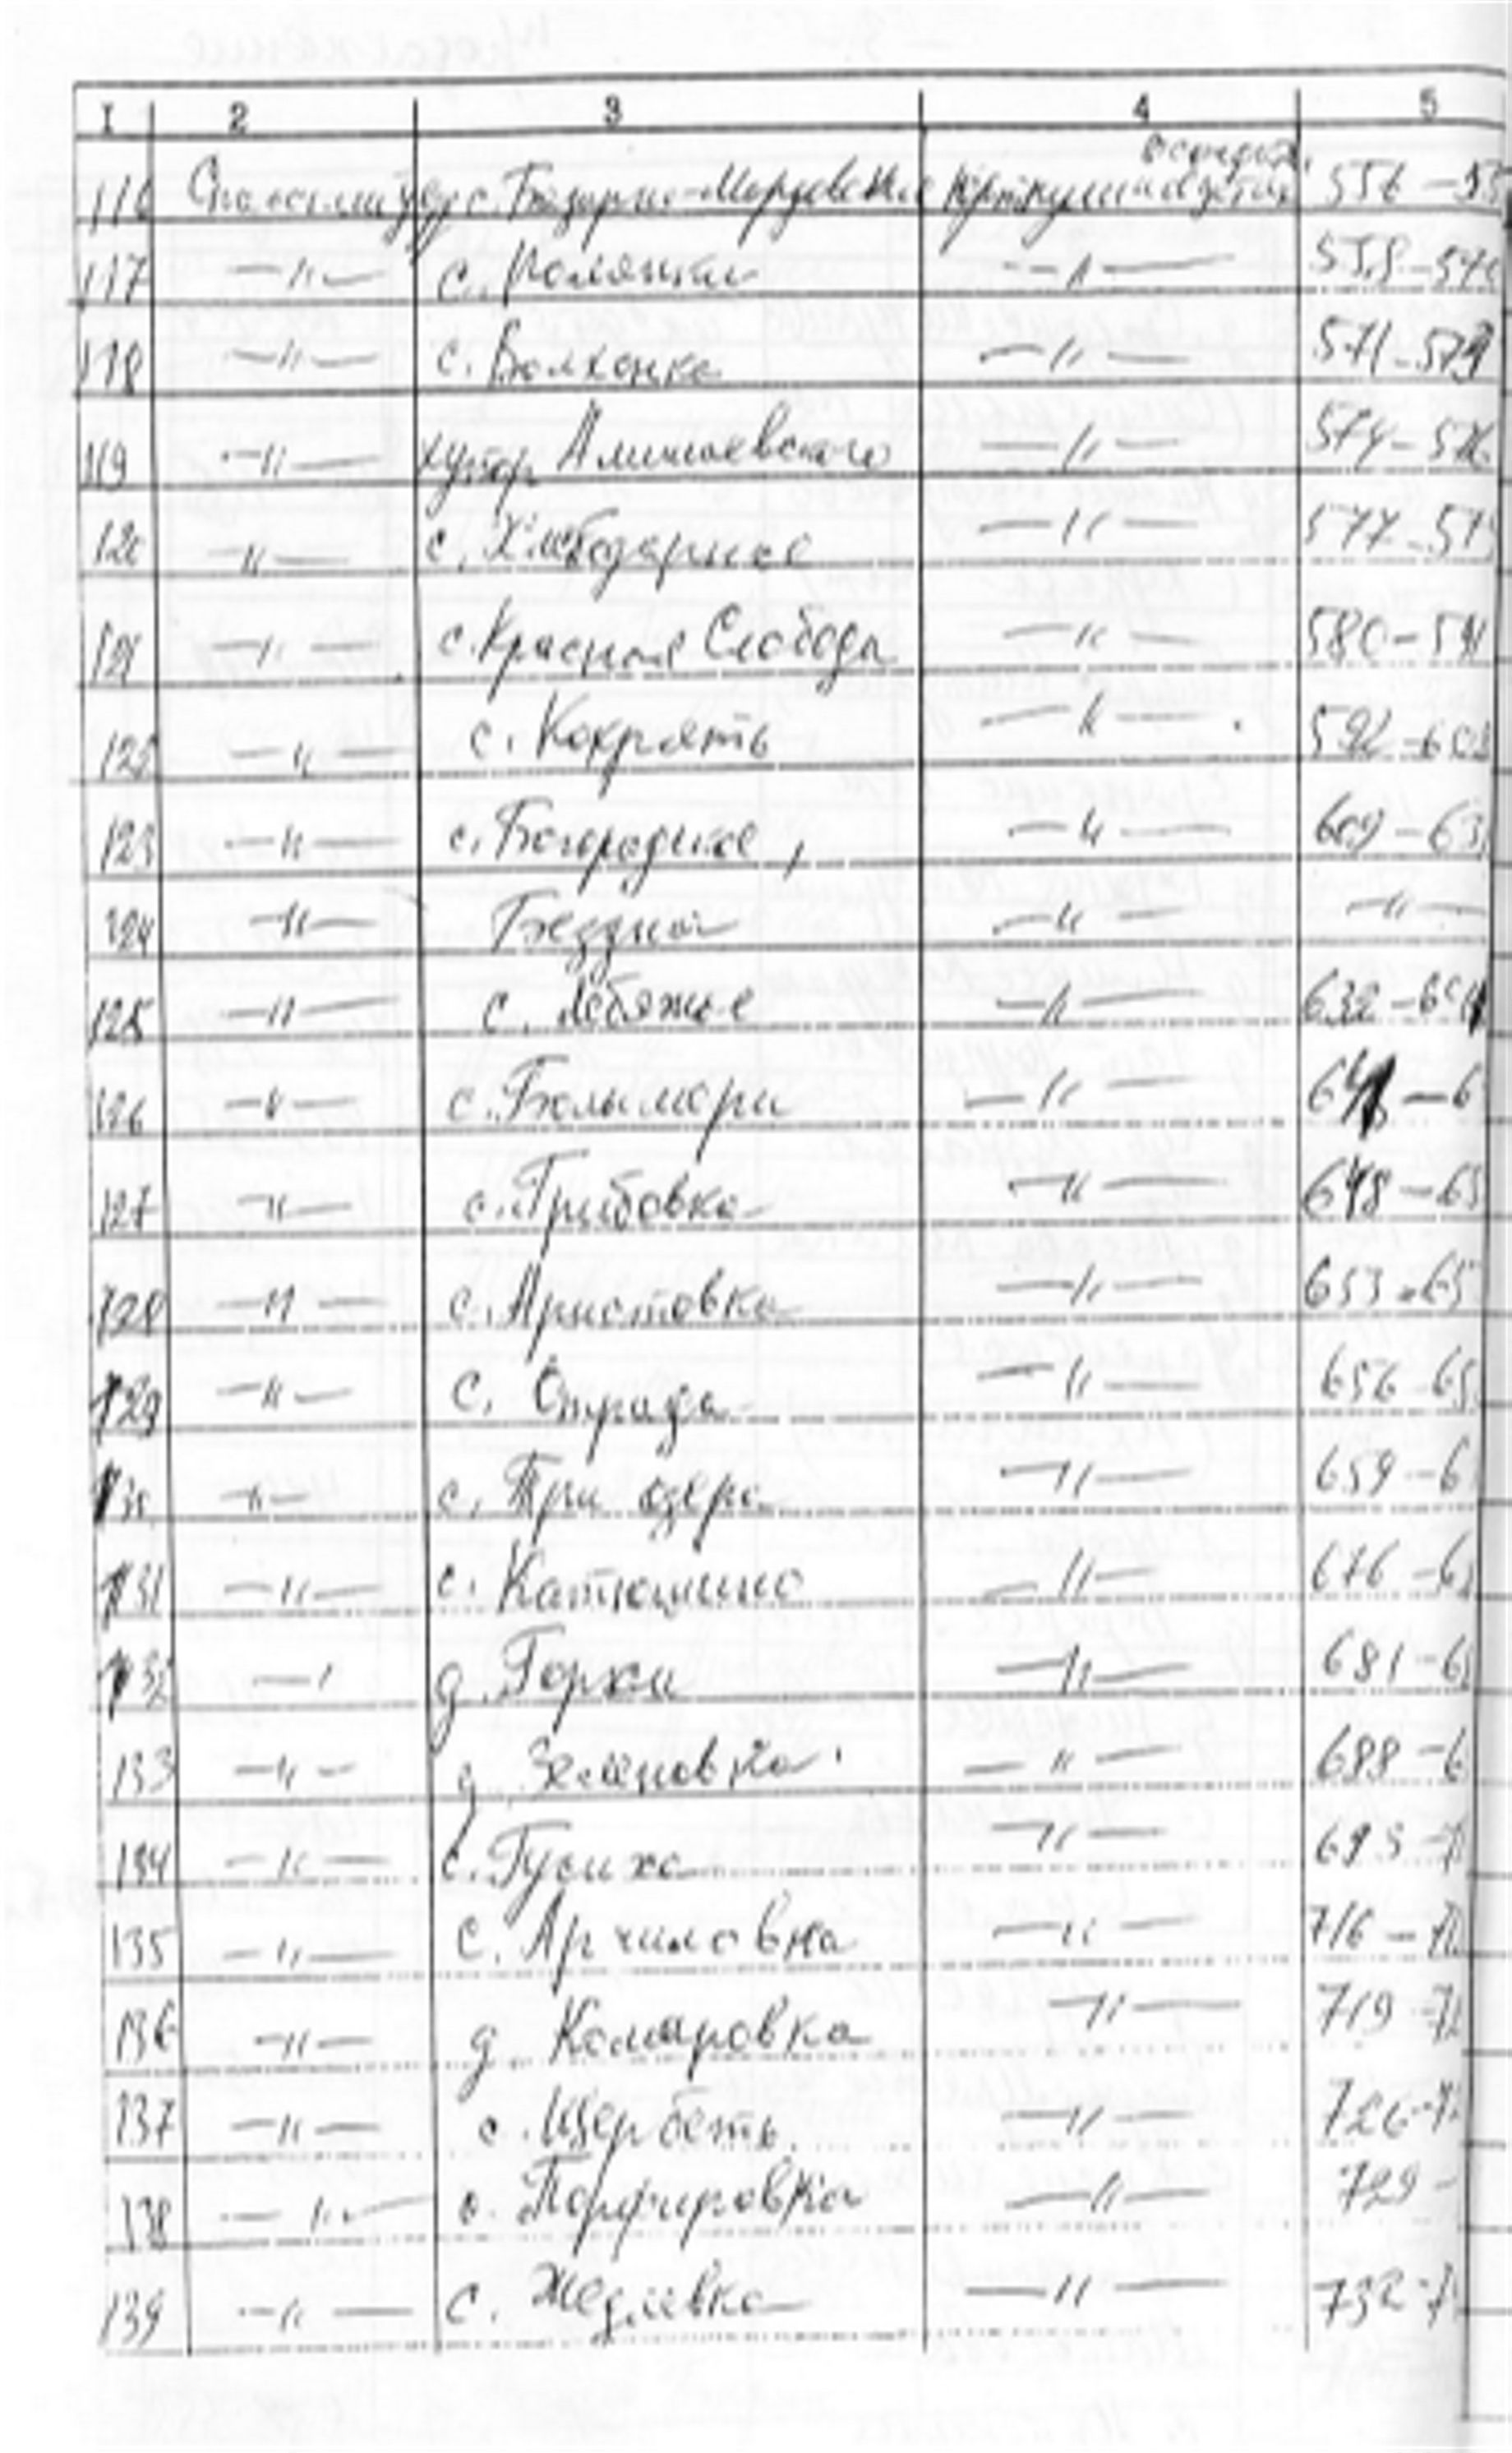 I 2 3 4 5
116 Спасский у. с. Базарно-Мордовские 556 –
117 —"— с. —"— 558 –
118 —"— с. Волхонка —"— 571 – 573
119 —"— хутор —"— 574 – 576
120 —"— с. Хлебодарное —"— 577 –
121 —"— с. Красная Слобода —"— 580 – 591
122 —"— с. Кокрять —"— 592 –
123 —"— с. Богородское, —"— 609 – 631
124 —"— Бездна —"— —"—
125 —"— с. Лебяжье —"— 632 –
126 —"— с. Балымери —"— – 6
127 —"— с. Грибовка —"— 648 – 65
128 —"— с. Аристовка —"— 653 – 65
129 —"— с. Отрада —"— 656 – 65
130 —"— с. Три озера —"— 659 – 6
131 —"— с. Катюшино —"— 676 – 6
132 —"— д. Горки —"— 681 – 6
133 —"— д. Зеленовка —"— 688 – 6
134 —"— с. Гусиха —"— 693 – 7
135 —"— с. Арчиловка —"— 716 – 7
136 —"— д. Комаровка —"— 719 – 7
137 —"— с. Щербеть —"— 726 – 7
138 —"— с. Порфировка —"— 729 –
139 —"— с. Жедлевка —"— 732 – 7